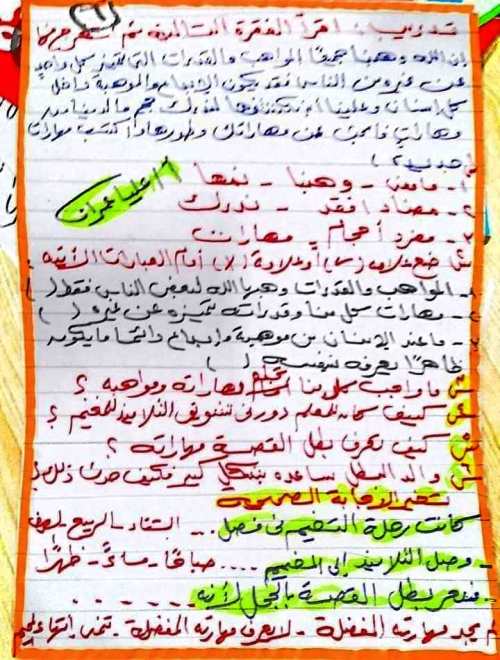 (٦)
تدريب: اقرأ الفقرة التالية ثم استخرج منها
إن الله وهبنا جميعًا المواهب والقدرات التى تميز كل واحد
عن غيره من الناس فقد يكون الإبداع والموهبة داخل
كل إنسان وعلينا أن نكتشفها لندرك حجم ما لدينا من
مهارات فابحث عن مهاراتك وطورها واكتسب مهارات
جديدة)
١- ما معنى - وهبنا - نمها
٢- مضاد افقد - ندرك
أ/ علياء عمران
٣- مفرد أحجام - مهارات
س ضع علامة (✓) أو علامة (x) أمام العبارات الآتية:
١- المواهب والقدرات وهبها الله لبعض الناس فقط ( )
٢- مهارات كل منا وقدراته تميزه عن غيره ( )
٣- ما عند الإنسان من موهبة وإبداع دائمًا ما يكون
ظاهرًا يعرفه بنفسه ( )
س ما واجب كل منا تجاه مهاراته ومواهبه ؟
س كيف كان للمعلم دور فى تشويق التلاميذ للمخيم ؟
س كيف تعرف بطل القصة مهاراته ؟
س والد البطل ساعده بشكل كبير فكيف حدث ذلك
تخير الإجابة الصحيحة
كانت رحلة التخييم فى فصل ... الشتاء - الربيع - الصيف
- وصل التلاميذ إلى المخيم .... صباحًا - مساءً - ظهرًا
- شعر بطل القصة بالخجل لأنه ......
لم يجد مهارته المفضلة - لا يعرف مهارته المفضلة - تمنى انتهاء المخيم